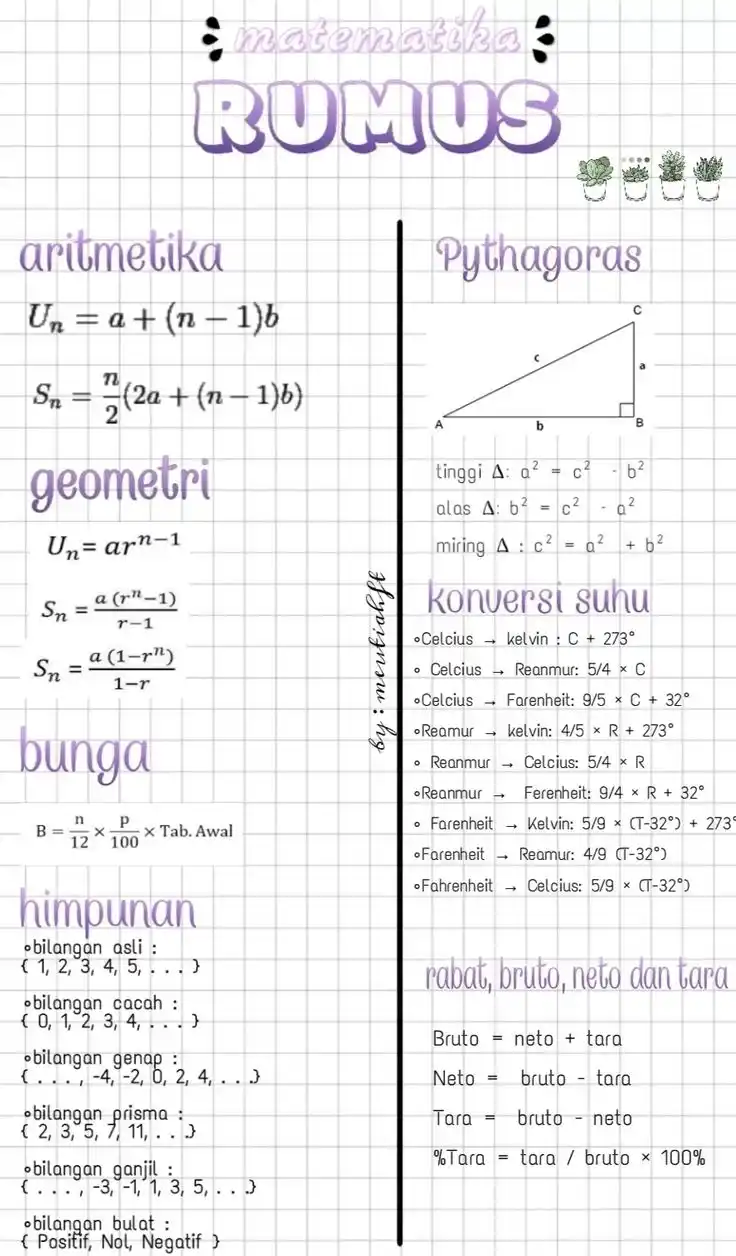 matematika
RUMUS
aritmetika
Uₙ = a + (n − 1)b
Sₙ = n/2 (2a + (n − 1)b)
geometri
Uₙ= arⁿ⁻¹
Sₙ = a (rⁿ−1) / r−1
Sₙ = a (1−rⁿ) / 1−r
bunga
B = n/12 × p/100 × Tab. Awal
himpunan
∘bilangan asli :
{ 1, 2, 3, 4, 5, . . . }
∘bilangan cacah :
{ 0, 1, 2, 3, 4, . . . }
∘bilangan genap :
{ . . . , -4, -2, 0, 2, 4, . . .}
∘bilangan prisma :
{ 2, 3, 5, 7, 11, . . .}
∘bilangan ganjil :
{ . . . , -3, -1, 1, 3, 5, . . .}
∘bilangan bulat :
{ Positif, Nol, Negatif }
by : meutiahft
Pythagoras
C
c
a
A
b
B
tinggi Δ: a² = c² - b²
alas Δ: b² = c² - a²
miring Δ : c² = a² + b²
konversi suhu
∘Celcius → kelvin : C + 273°
∘ Celcius → Reanmur: 5/4 × C
∘Celcius → Farenheit: 9/5 × C + 32°
∘Reamur → kelvin: 4/5 × R + 273°
∘ Reanmur → Celcius: 5/4 × R
∘Reanmur → Ferenheit: 9/4 × R + 32°
∘ Farenheit → Kelvin: 5/9 × (T-32°) + 273°
∘Farenheit → Reamur: 4/9 (T-32°)
∘Fahrenheit → Celcius: 5/9 × (T-32°)
rabat, bruto, neto dan tara
Bruto = neto + tara
Neto = bruto - tara
Tara = bruto - neto
%Tara = tara / bruto × 100%